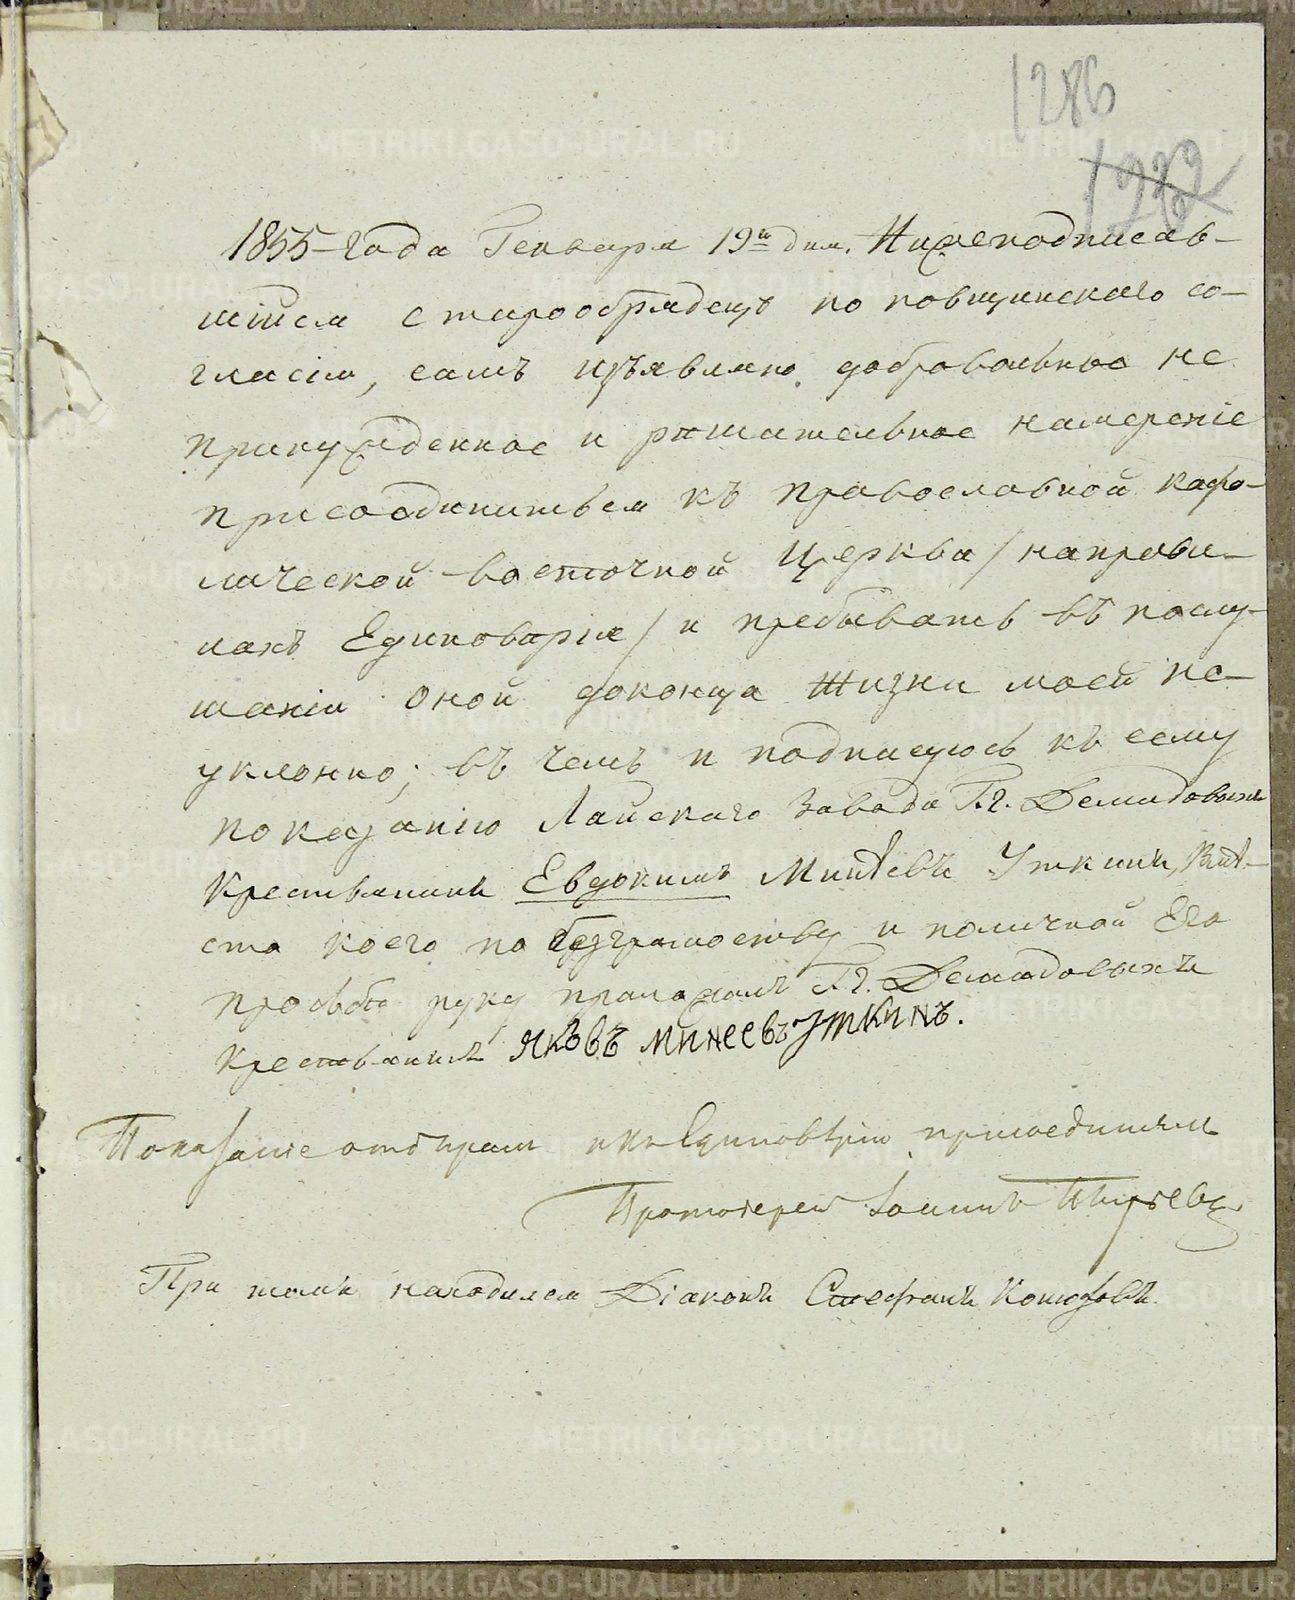 1286
1855 года Генваря 19го дня. Нижеподписав-
шійся старообрядецъ по повщинскаго со-
гласія, симъ изъявляю добровольное не
принужденное и решительное намереніе
присоодиниться къ православной кафо-
лической восточной Церкви / на прави-
лахъ Единоверія / и пребывать въ послу-
шаніи оной доконца жизни моей не-
уклонно; въ чемъ и подписуюсь къ сему
показанію Лайскаго завода Г.г. Демидовыхъ
Крестьянинъ Евдокимъ Минѣевъ Уткинъ, Вмѣ-
сто коего по безграмотству и поличной Его
прозьбе руку приложилъ Г.г. Демидовыхъ
Крестьянинъ Яковъ Минеевъ Уткинъ.
Показаніе отбиралъ и къ Единовѣрію присоединялъ
Протоіерей Іоаннъ
При томъ находился Діаконъ Стефанъ Конюховъ.
METRIKI.GASO-URAL.RU